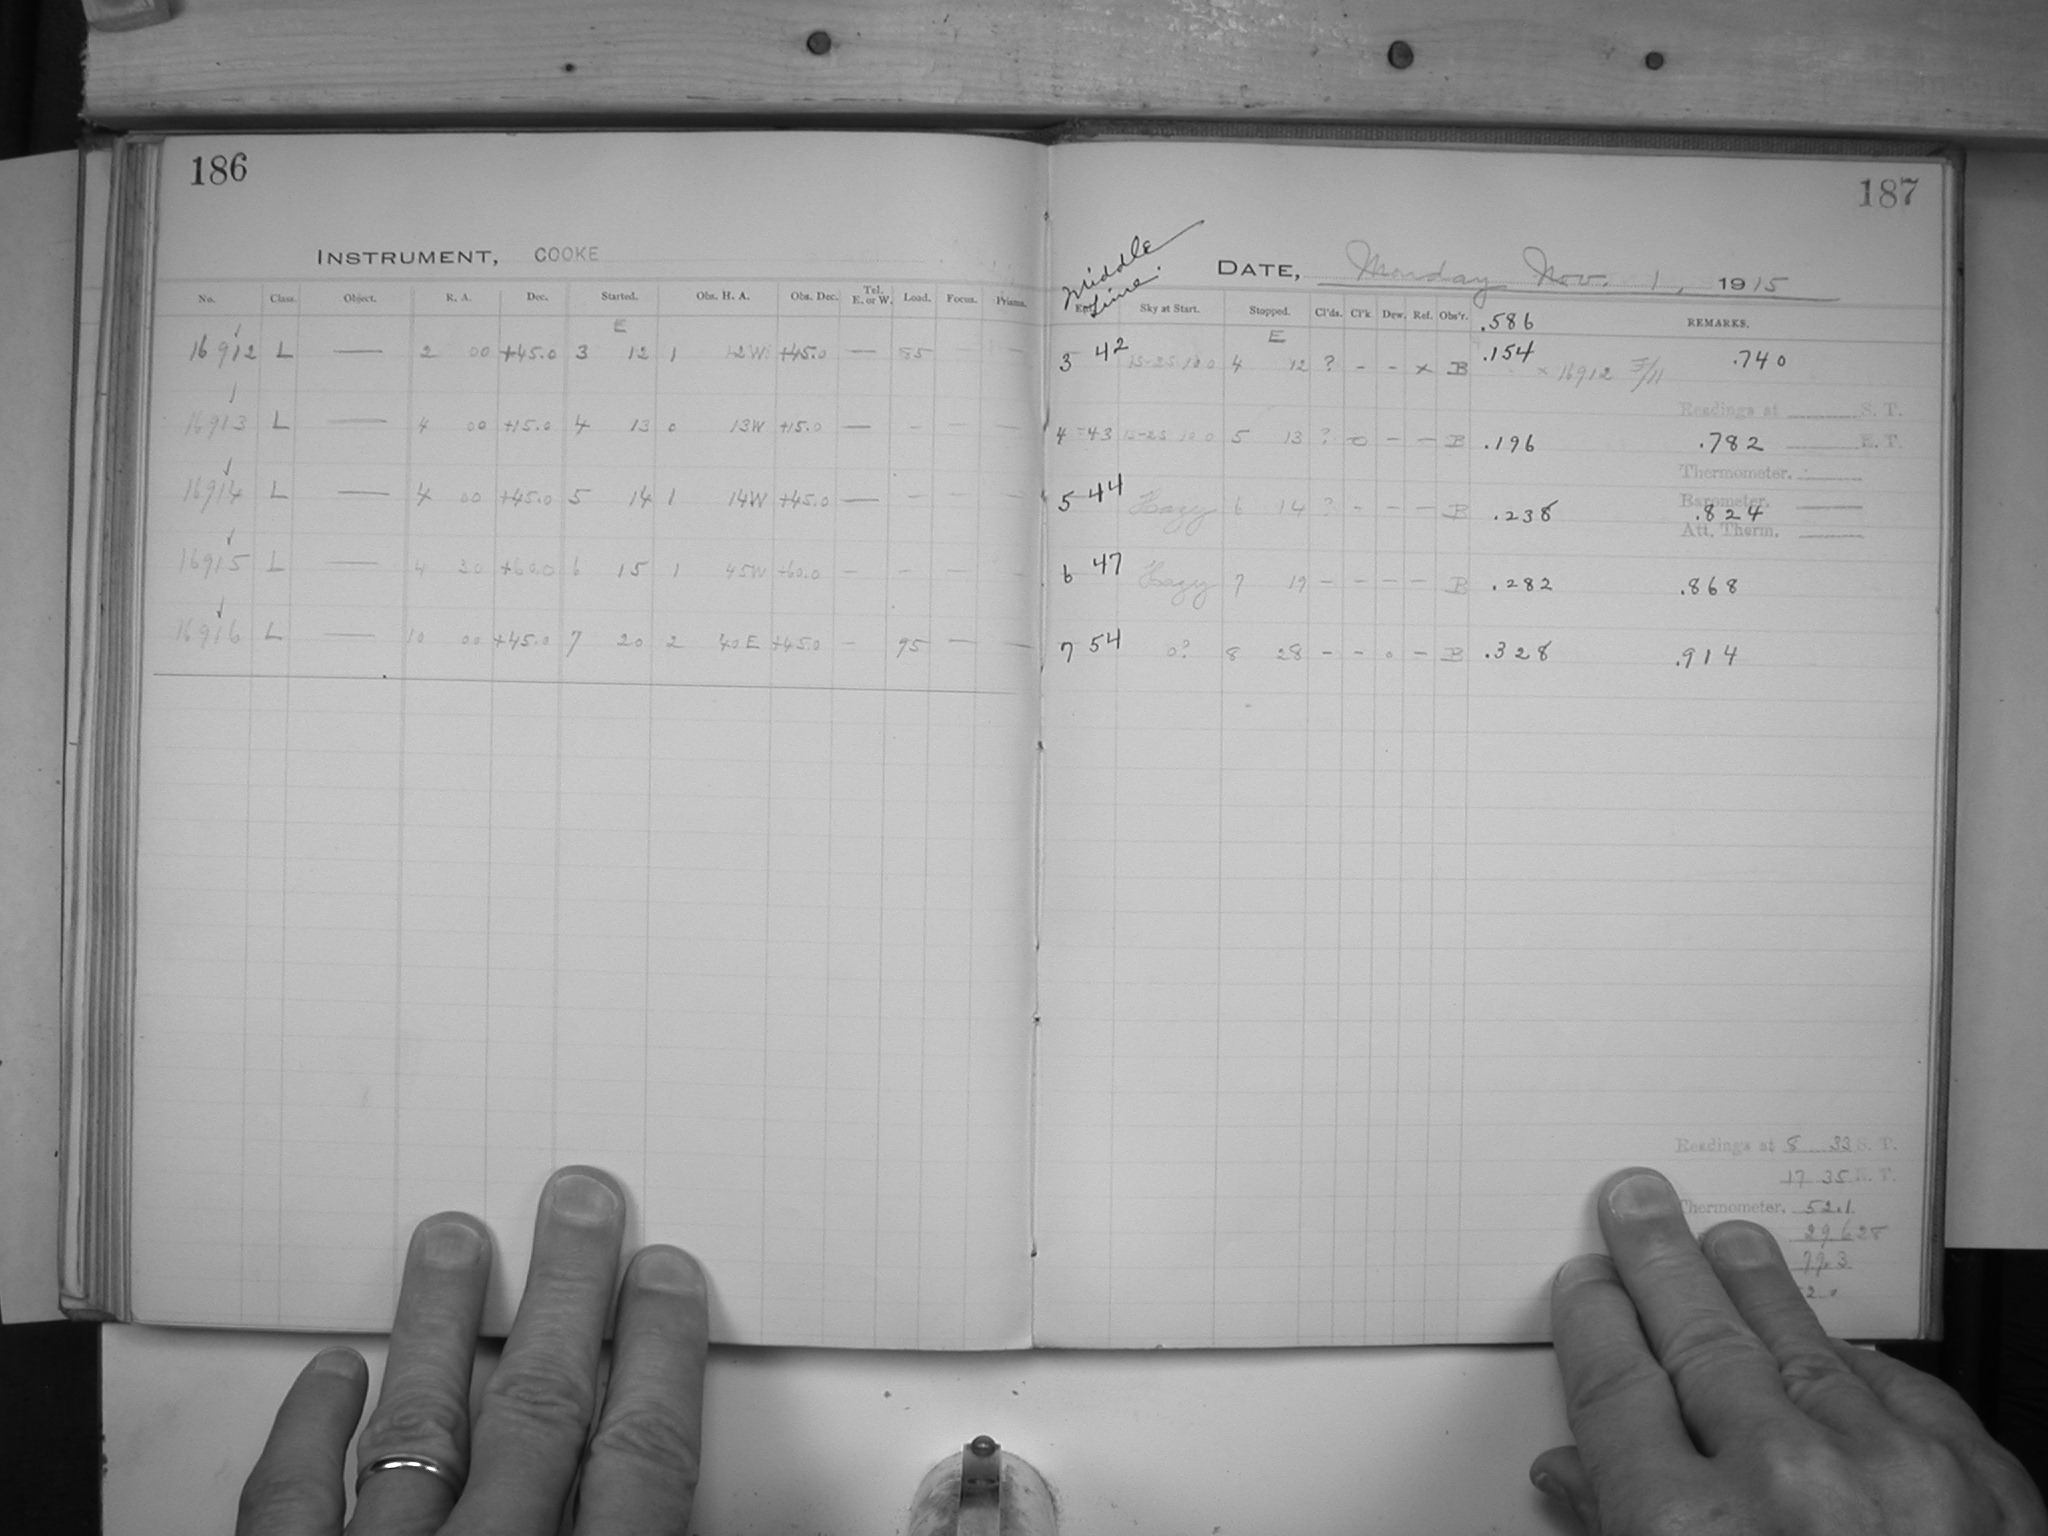 186
INSTRUMENT, COOKE
No. Class. Object. R. A. Dec. Started. Obs. H. A. Obs. Dec. Tel. E. or W. Load. Focus. Prisms.
E
16912 L — 2 00 +45.0 3 12 1 12W +45.0 — 85 — —
16913 L — 4 00 +15.0 4 13 0 13W +15.0 — - - —
16914 L — 4 00 +45.0 5 14 1 14W +45.0 — - - —
16915 L — 4 30 +60.0 6 15 1 45W +60.0 — - - —
16916 L — 10 00 +45.0 7 20 2 40E +45.0 - 95 — —
187
Middle Time.
DATE, Monday Nov. 1, 1915
Sky at Start. Stopped. Cl'ds. Cl'k Dew. Ref. Obs'r. .586 REMARKS.
E
3 42 15-25 100 4 12 ? - - x B .154 x 16912 .740
Readings at S. T.
4 43 15-25 100 5 13 ? 0 - - B .196 .782 E. T.
Thermometer.
5 44 Hazy 6 14 ? - - - B .238 Barometer. .824
Att. Therm.
6 47 Hazy 7 19 - - - - B .282 .868
7 54 0? 8 28 - - 0 - B .328 .914
Readings at 8 33 S. T.
17 35 E. T.
Thermometer. 52.1
29.628